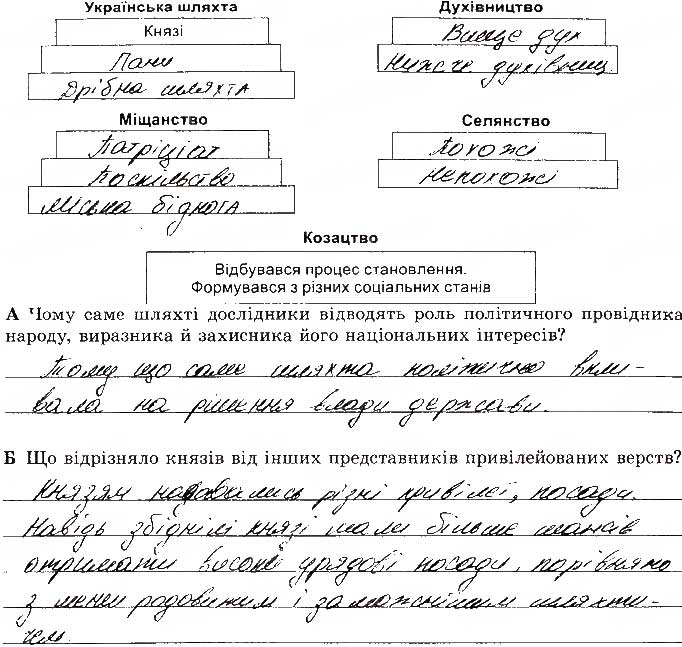 Українська шляхта
Князі
Пани
Дрібна шляхта
Духівництво
Вище дух
Нижче духівниц
Міщанство
Патриціат
Поспільство
Міська біднота
Селянство
Похожі
Непохожі
Козацтво
Відбувався процес становлення.
Формувався з різних соціальних станів
А Чому саме шляхті дослідники відводять роль політичного провідника
народу, виразника й захисника його національних інтересів?
Тому що саме шляхта політично впли-
вала на рішення влади держави.
Б Що відрізняло князів від інших представників привілейованих верств?
Князям надавались різні привілеї, посади.
Навідь збіднілі князі мали більше шансів
отримати високі урядові посади, порівняно
з менш родовитим і заможнішим шляхти-
чем